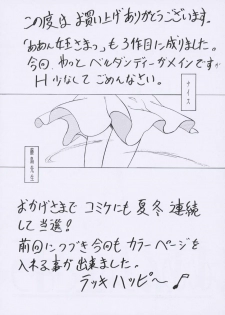 この度は お買い上げありがとうございます。
「ああん女王さまっ」も3作目に成りました。
今回、やっと ベルダンディーがメインですが
H 少なくて ごめんなさい。
ナイス
藤島先生
おかげさまで コミケにも 夏冬 連続
して 当選!
前回につづき今回も カラーページを
入れる事が出来ました。
ラッキハッピ〜♪